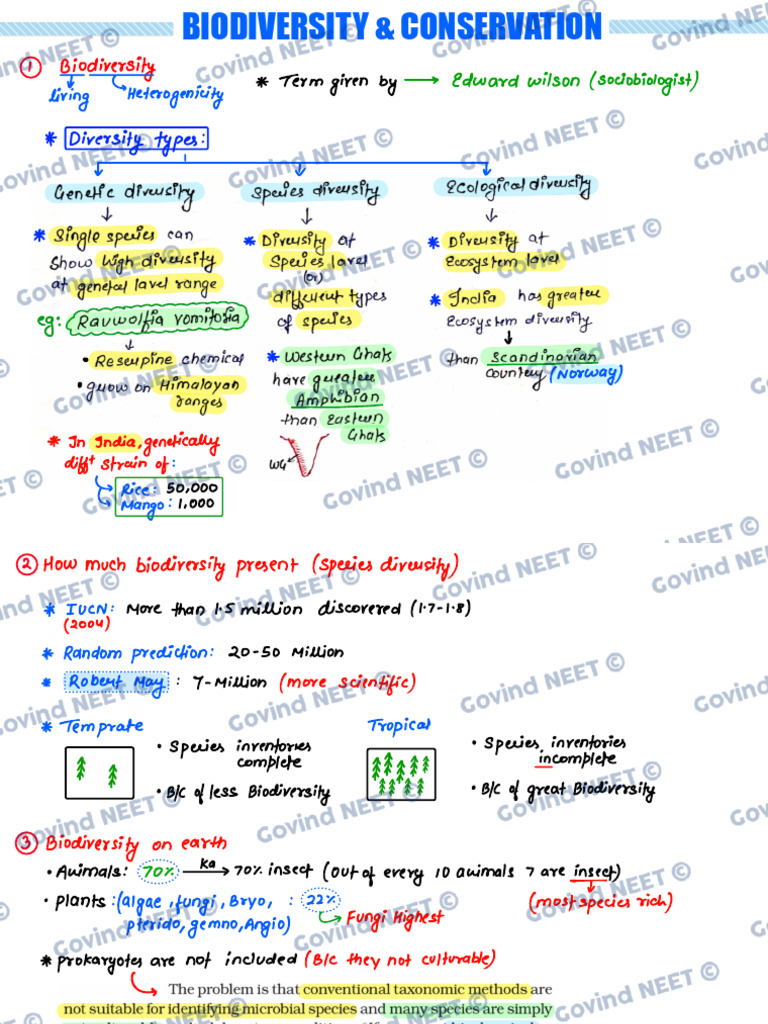 BIODIVERSITY & CONSERVATION
① Biodiversity
living Heterogenicity
* Term given by → Edward wilson (sociobiologist)
* Diversity types:
Genetic diversity
* Single species can
show high diversity
at general lavel range
eg: Rauwolfia vomitoria
• Reserpine chemical
• grow on Himalayan
ranges
* In India, genetically
diffᵗ strain of:
Rice: 50,000
Mango: 1,000
Species diversity
* Diversity at
Species lavel
(or)
different types
of species
* Western Ghats
have greater
Amphibian
than Eastern
Ghats
WG
Ecological diversity
* Diversity at
Ecosystem level
* India has greater
Ecosystem diversity
than Scandinarian
country (Norway)
② How much biodiversity present (species diversity)
* IUCN: More than 1.5 million discovered (1.7-1.8)
(2004)
* Random prediction: 20-50 Million
* Robert May : 7-Million (more scientific)
* Temprate
• Species inventories
complete
• B/C of less Biodiversity
Tropical
• Species inventories
incomplete
• B/C of great Biodiversity
③ Biodiversity on earth
• Animals: 70% ka → 70% insect (out of every 10 animals 7 are insect)
(most species rich)
• plants: (algae, fungi, Bryo, : 22%
pterido, gemno, Angio)
Fungi Highest
* prokaryotes are not included (B/C they not culturable)
The problem is that conventional taxonomic methods are
not suitable for identifying microbial species and many species are simply
Govind NEET ©